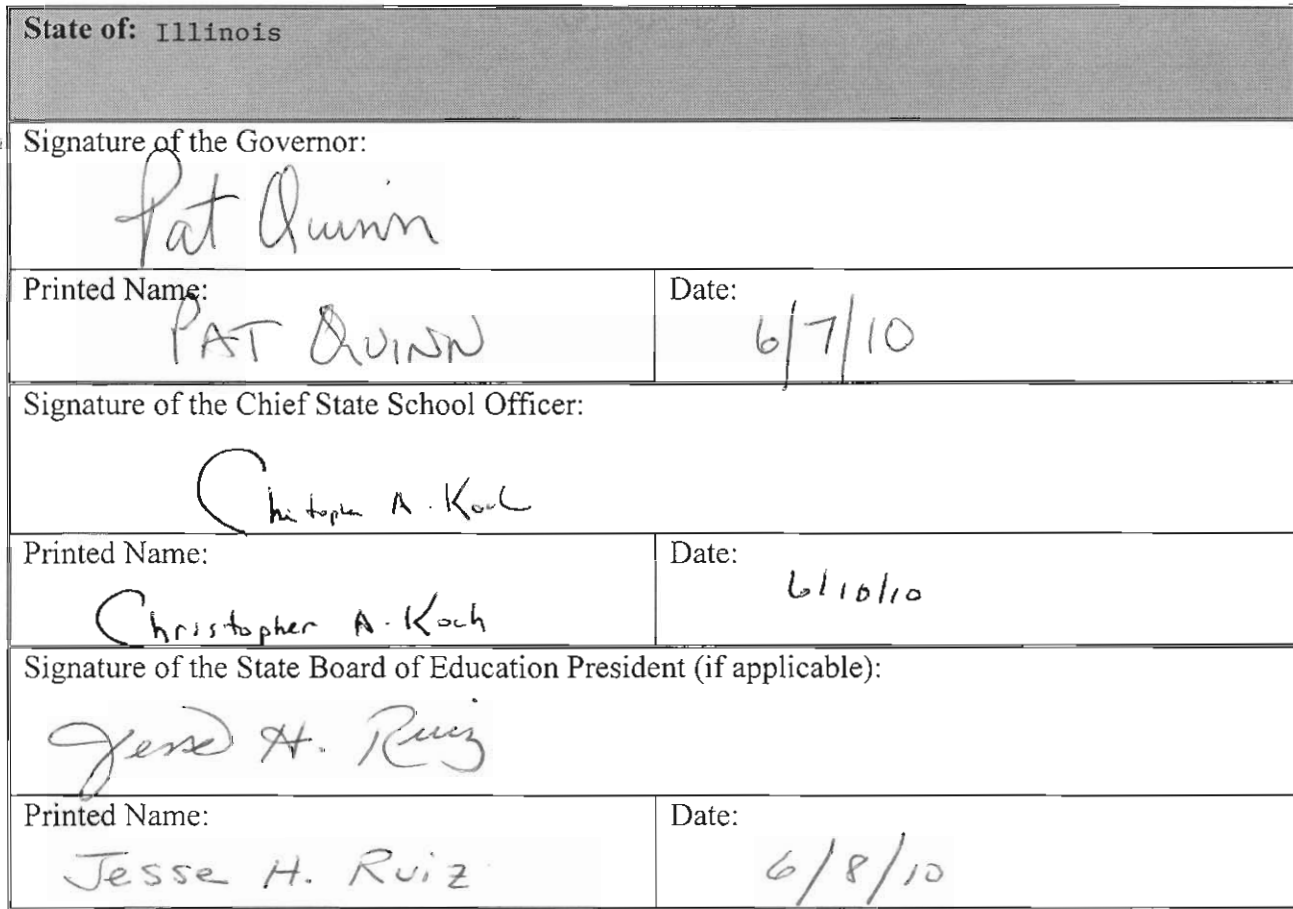 State of: Illinois
Signature of the Governor:
Pat Quinn
Printed Name:
PAT QUINN
Date:
6/7/10
Signature of the Chief State School Officer:
Christopher A. Koch
Printed Name:
Christopher A. Koch
Date:
6/10/10
Signature of the State Board of Education President (if applicable):
Jesse H. Ruiz
Printed Name:
Jesse H. Ruiz
Date:
6/8/10